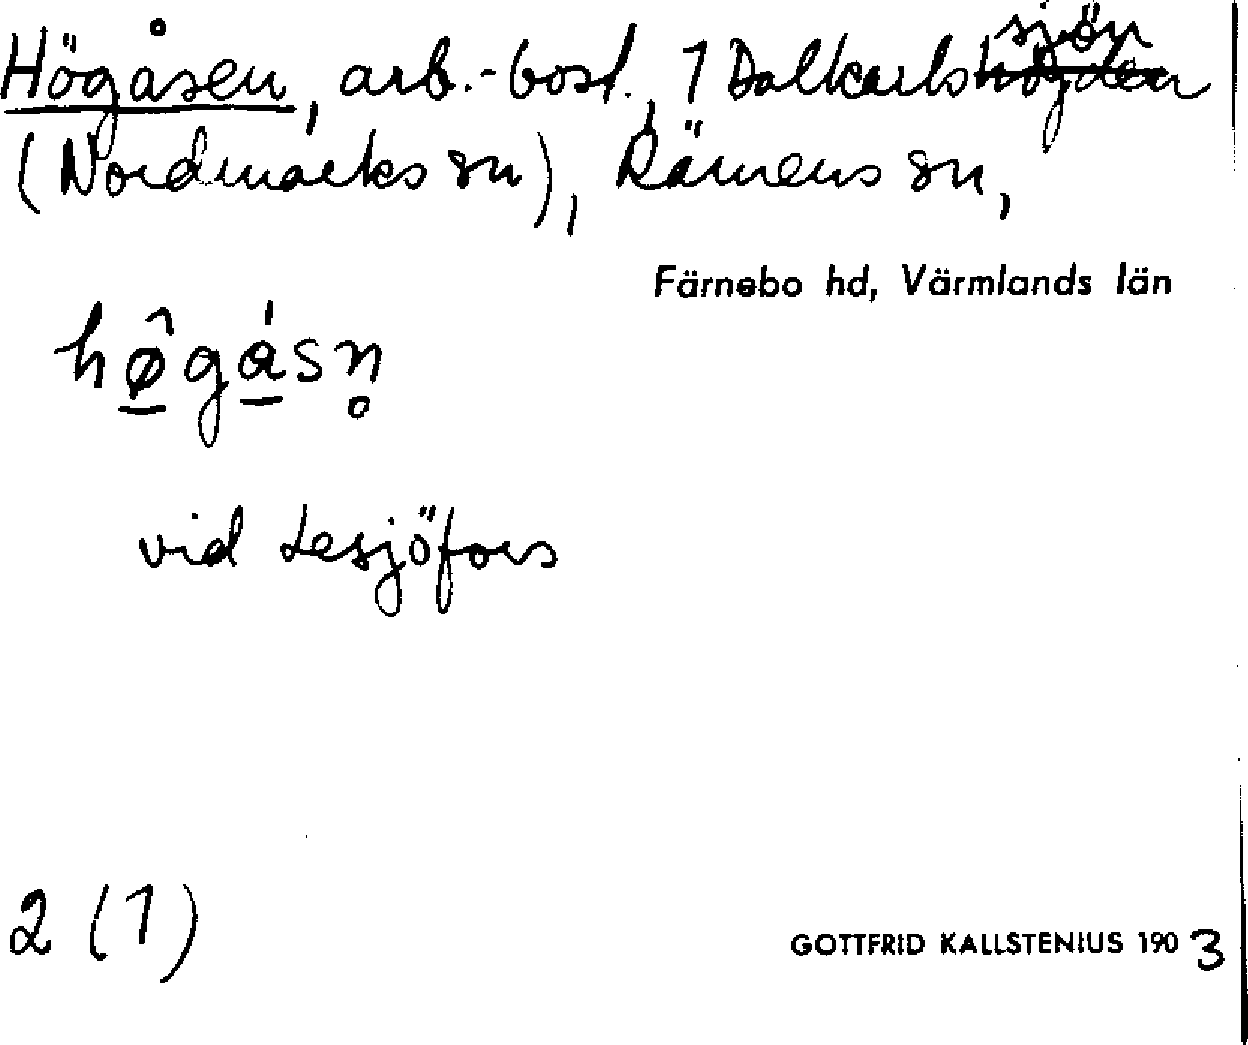 Högåsen, arb.-bost., 1 Dalkarlshöjden sjön
(Nordmarks sn), Rämens sn,
Färnebo hd, Värmlands län
hø̲̂gá̲sn̥
vid Lesjöfors
2 (1)
GOTTFRID KALLSTENIUS 1903